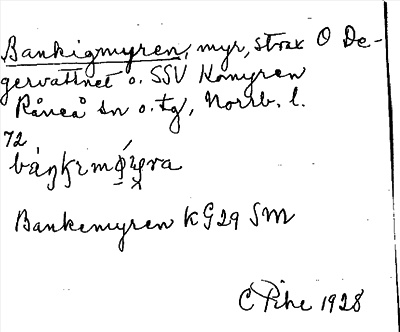 Bankigmyren, myr, strax O De-
gervattnet o. SSV Komyren
Råneå sn o. tg, Norrb. l.
72
Bankemyren KG29 SM
C Pihe 1928